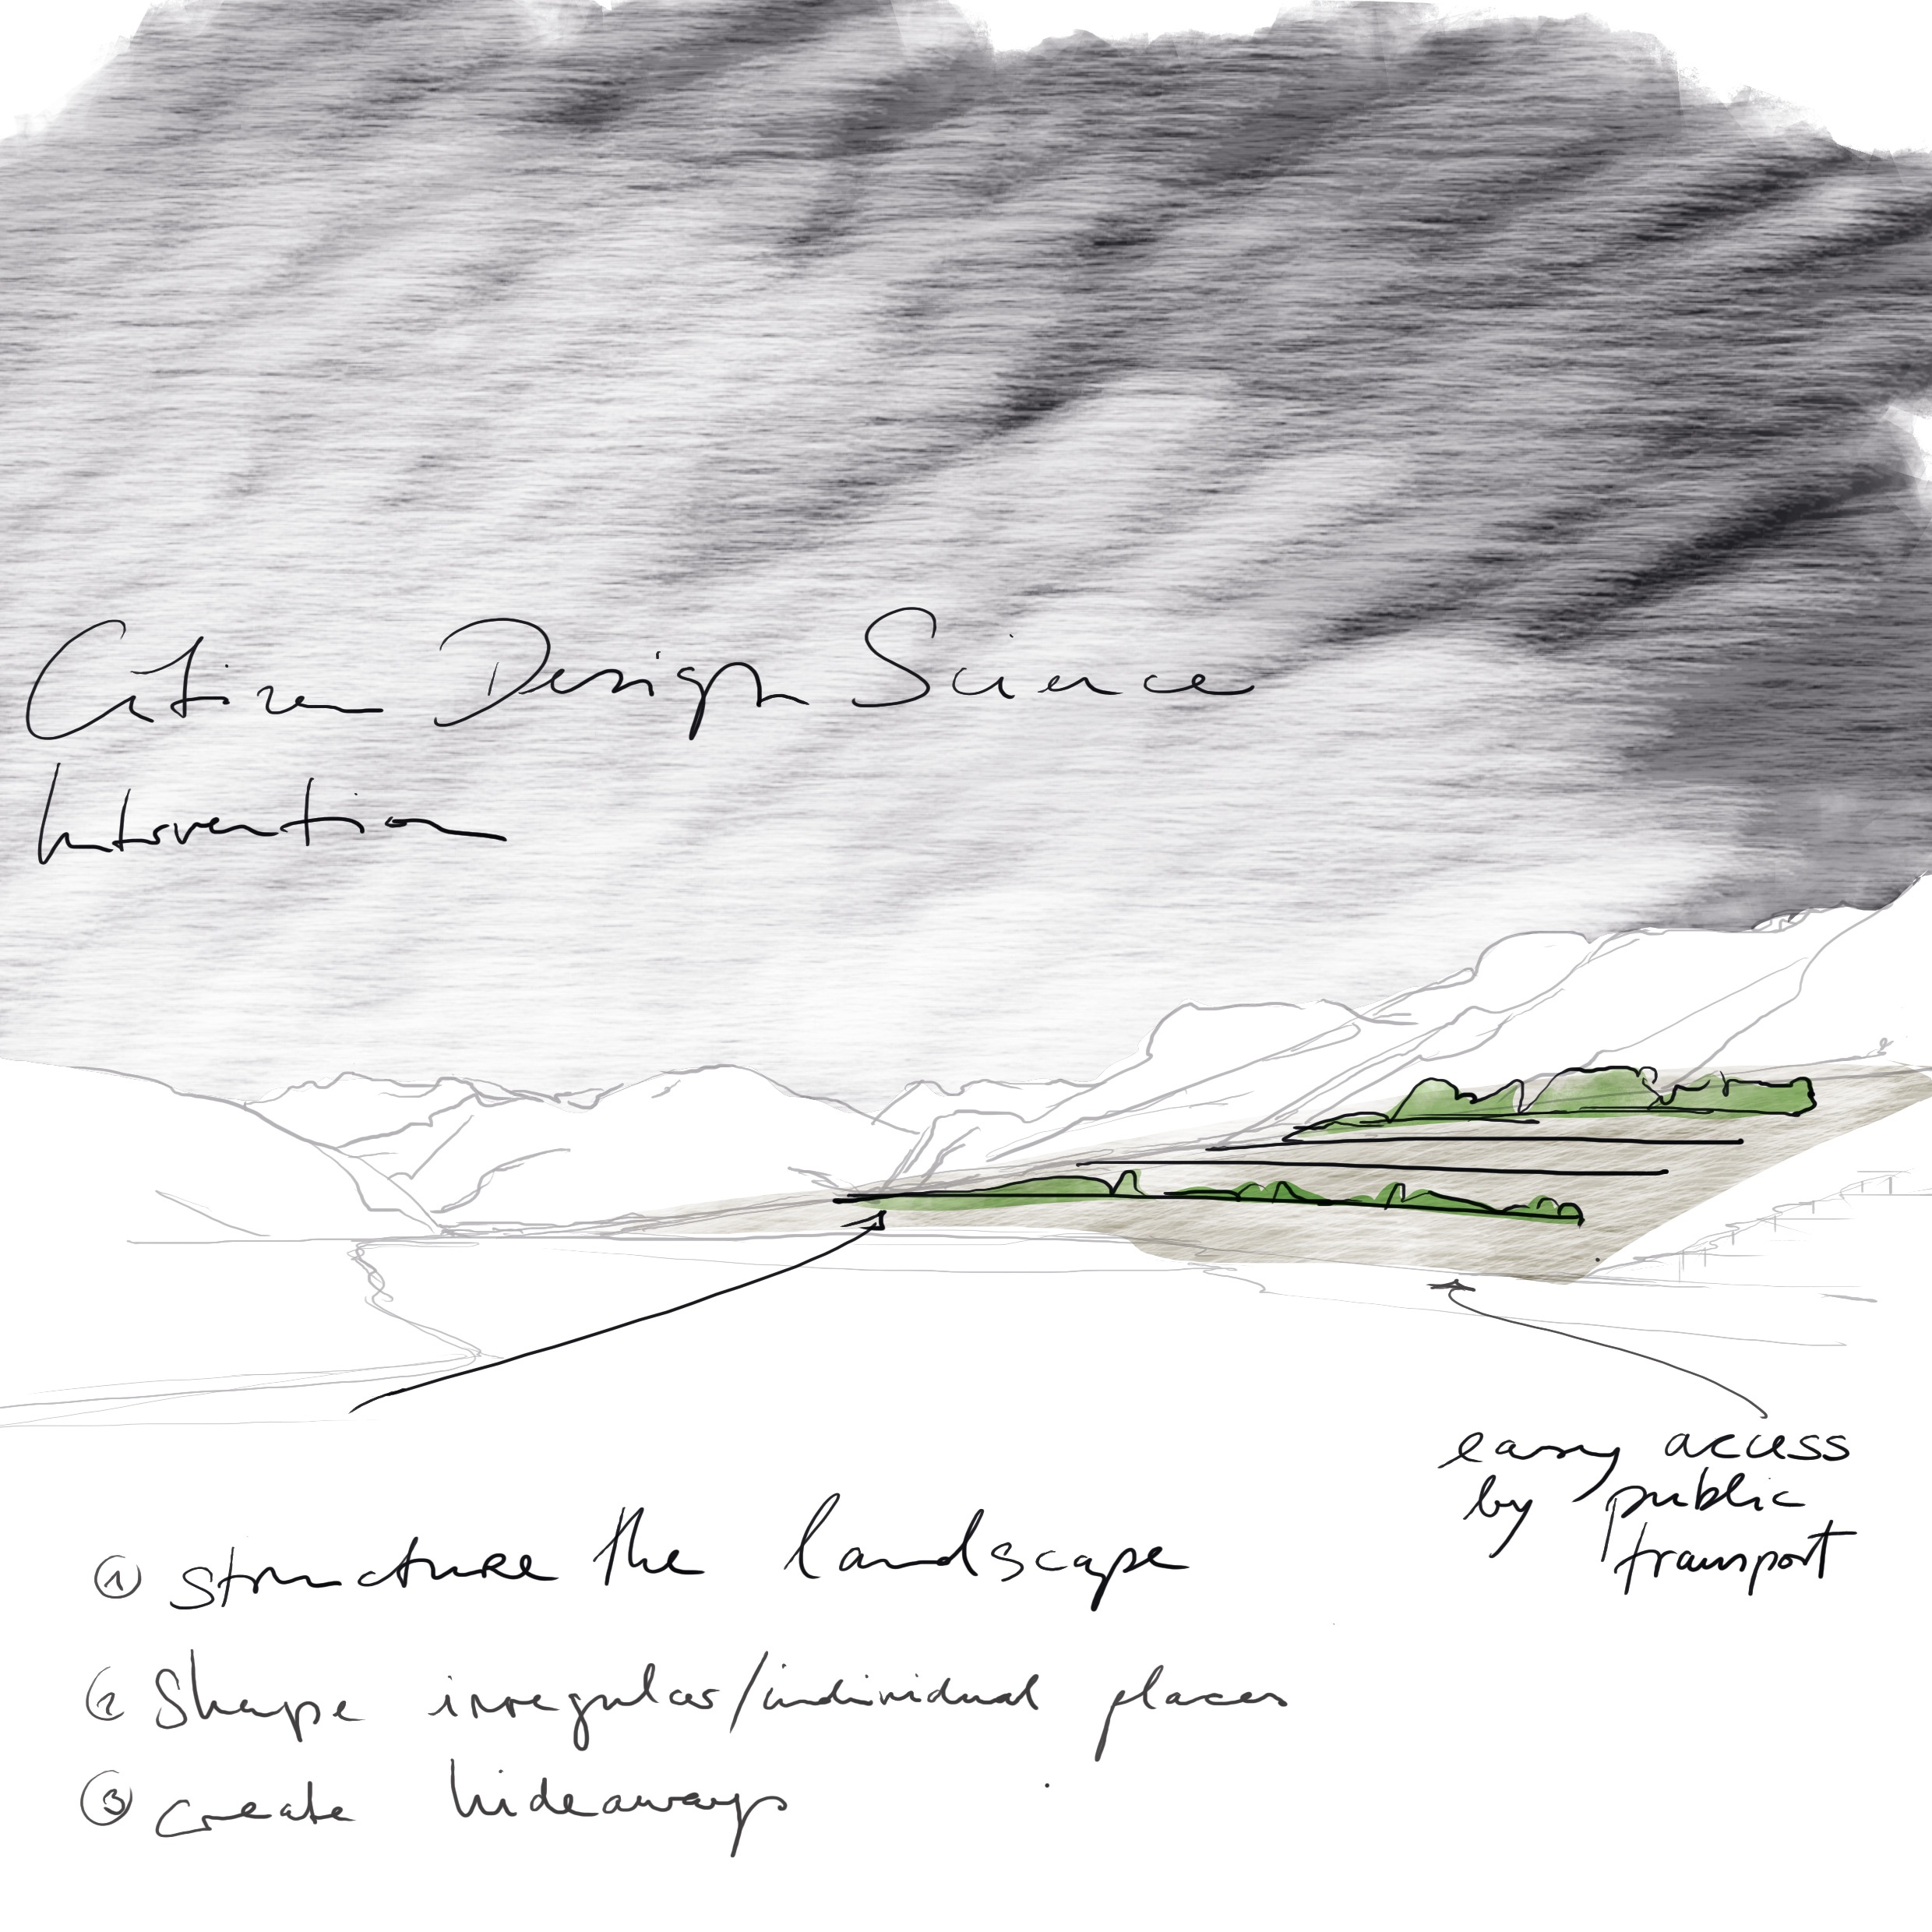 Citizen Design Science
Intervention
easy access
by public
transport
① structure the landscape
② Shape irregular/individual places
③ create hideaways